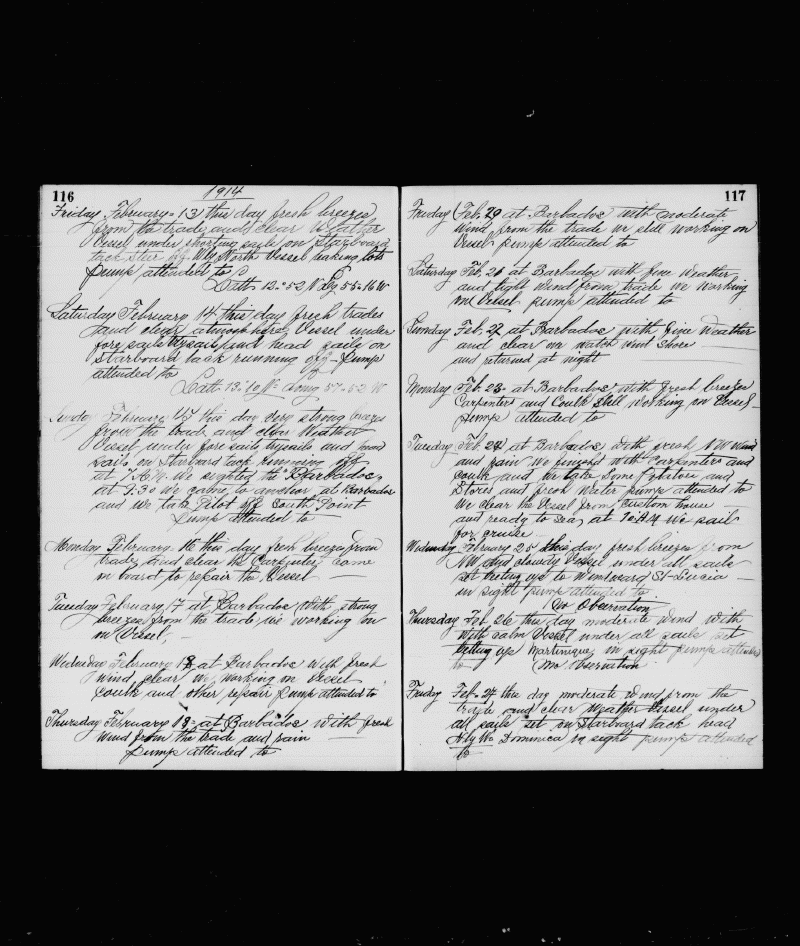 116
1914
Friday February 13 this day fresh breezes
from the trade and clear Weather
Vessel under shorting sails on Starboard
tack Steer by Wly North Vessel making lots
Pump attended to
Latt 12°52 N Lg 55-16 W
Saturday February 14 this day fresh trades
and clear atmosphere Vessel under
fore sails trysails and head sails on
Starboard tack running off Pump
attended to
Latt 13:10 N Long 57-52 W
Sunday February 15 this day very strong breezes
from the trade and clear Weather
Vessel under fore sails trysails and head
Sails on Starboard tack running off
at 7 A.M. We sighted the Barbados
at 9:30 We came to anchor at Barbados
and we take Pilot off South Point
Pump attended to
Monday February 16 this day fresh breezes from
trade and clear the Carpenter came
in board to repair the Vessel
Tuesday February 17 at Barbados with strong
breezes from the trade we working on
on Vessel,
Wednesday February 18 at Barbados with fresh
Wind clear we working on Vessel
coulk and other repair Pump attended to
Thursday February 19 at Barbados with fresh
Wind from the trade and rain
Pump attended to
117
Friday Feb. 20 at Barbados with moderate
Wind from the trade we still working on
Vessel pump attended to
Saturday Feb. 21 at Barbados with fine Weather
and light Wind from trade we working
on Vessel pump attended to
Sunday Feb. 22 at Barbados with fine Weather
and clear on watch went shore
and returned at night
Monday Feb. 23 at Barbados with fresh breezes
Carpenters and Coulk still working on Vessel
pump attended to
Tuesday Feb. 24 at Barbados with fresh Wind
and rain we finished with Carpenters and
coulk and we take some Potatoes and
Stores and fresh Water pump attended to
We clear the Vessel from Custom house
and ready to Sea, at We sail
for cruise
Wednesday February 25 this day fresh breezes from
NW and cloudy Vessel under all sails
set beting up to Windward St-Lucia
in sight pump attended to
No Observation
Thursday Feb 26 this day moderate wind with
with calm Vessel under all sails set
beting up Martinique in sight pumps attended
to No Observation
Friday Feb. 27 this day moderate wind from the
trade and clear Weather Vessel under
all sails set on Starboard tack head
N by W. Dominica in sight pumps attended
to